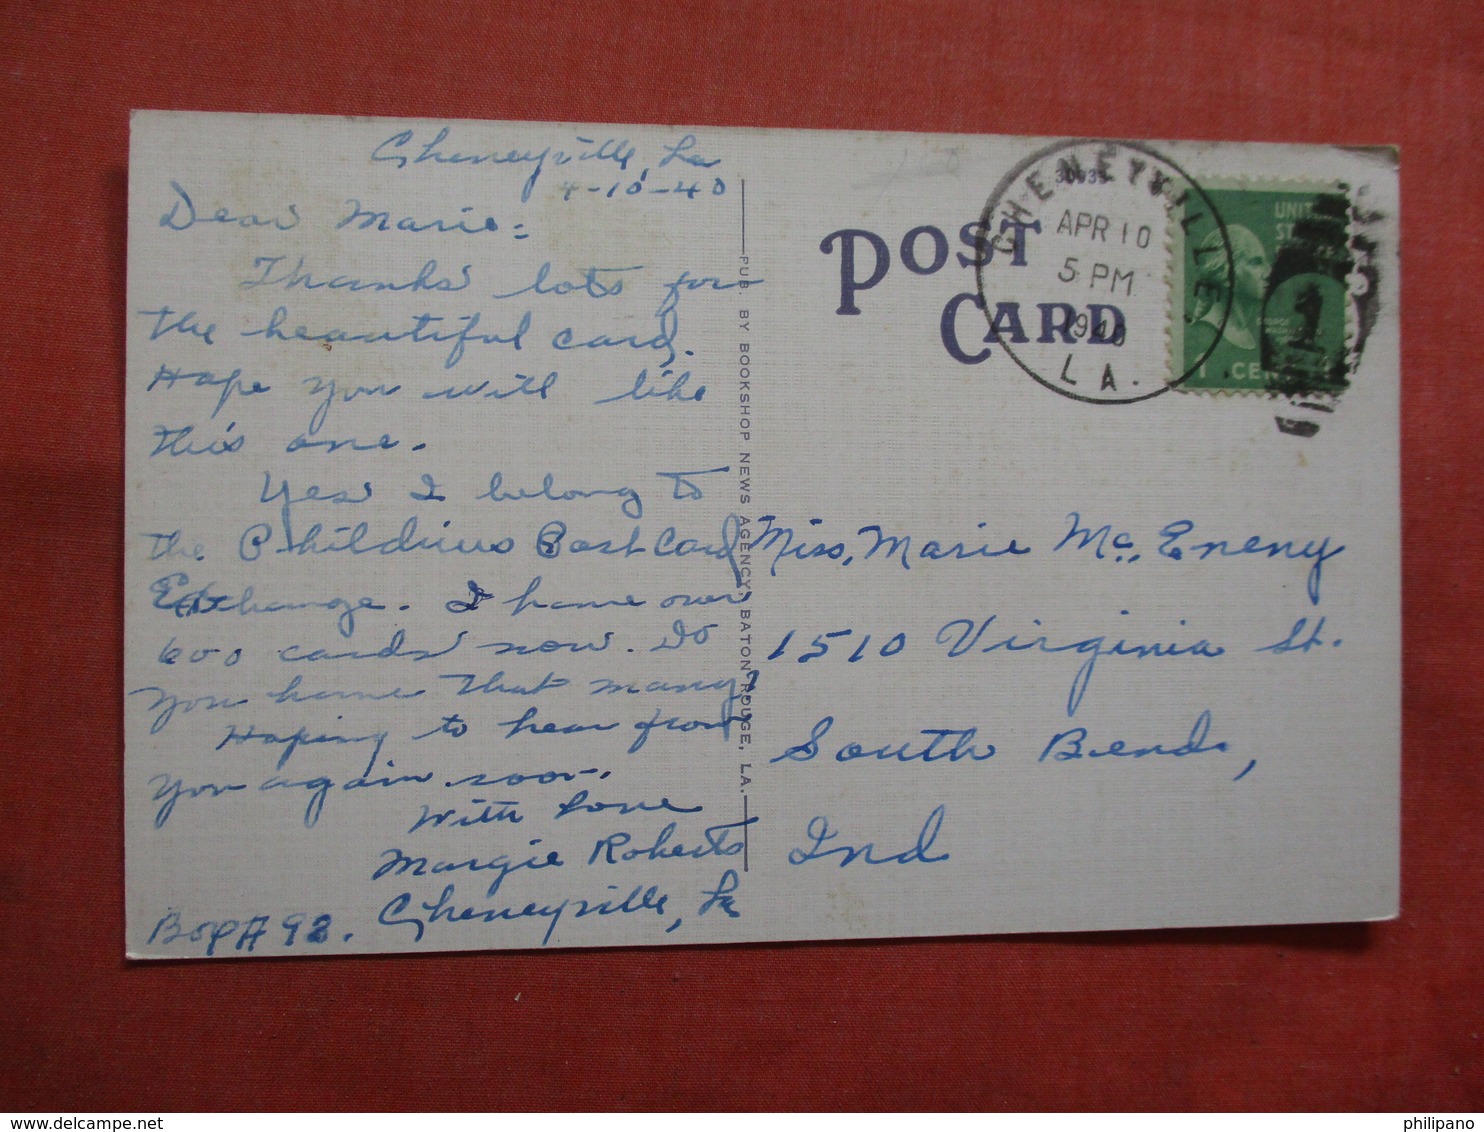 Cheneyville, La
4-10-40
Dear Marie:
Thanks lots for
the beautiful card.
Hope you will like
this one.
Yes I belong to
the Childrens Post Card
Exchange. I have over
600 cards now. Do
you have that many?
Hoping to hear from
you again soon.
With Love
Margie Roberts
Cheneyville, La
Box # 92.
PUB. BY BOOKSHOP NEWS AGENCY, BATON ROUGE, LA.
POST
CARD
CHENEYVILLE
APR 10
5 PM
1940
LA.
UNIT
1 CEN
1
Miss, Marie Mc, Eneny
1510 Virginia St.
South Bend,
Ind
delcampe.net
philipano